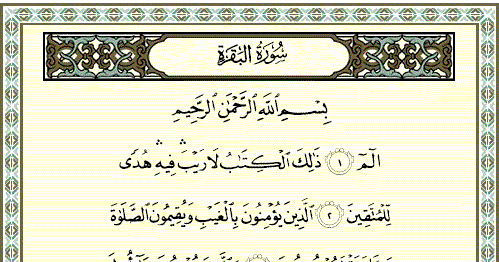 سُورَةُ البَقَرَةِ
بِسْمِ ٱللَّهِ ٱلرَّحْمَٰنِ ٱلرَّحِيمِ
الٓمٓ ١ ذَٰلِكَ ٱلْكِتَٰبُ لَا رَيْبَ ۛ فِيهِ ۛ هُدًى
لِّلْمُتَّقِينَ ٢ ٱلَّذِينَ يُؤْمِنُونَ بِٱلْغَيْبِ وَيُقِيمُونَ ٱلصَّلَوٰةَ